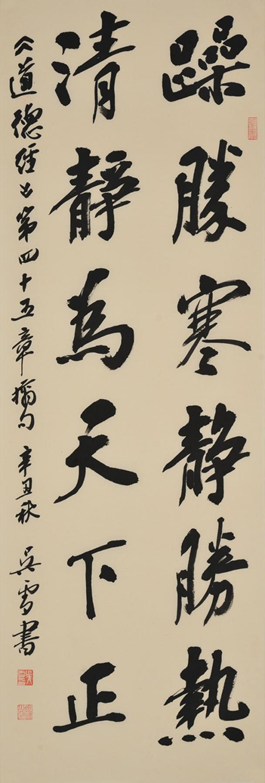 躁勝寒静勝熱
清靜為天下正
《道德經》第四十五章摘句 辛丑秋 吳雪書